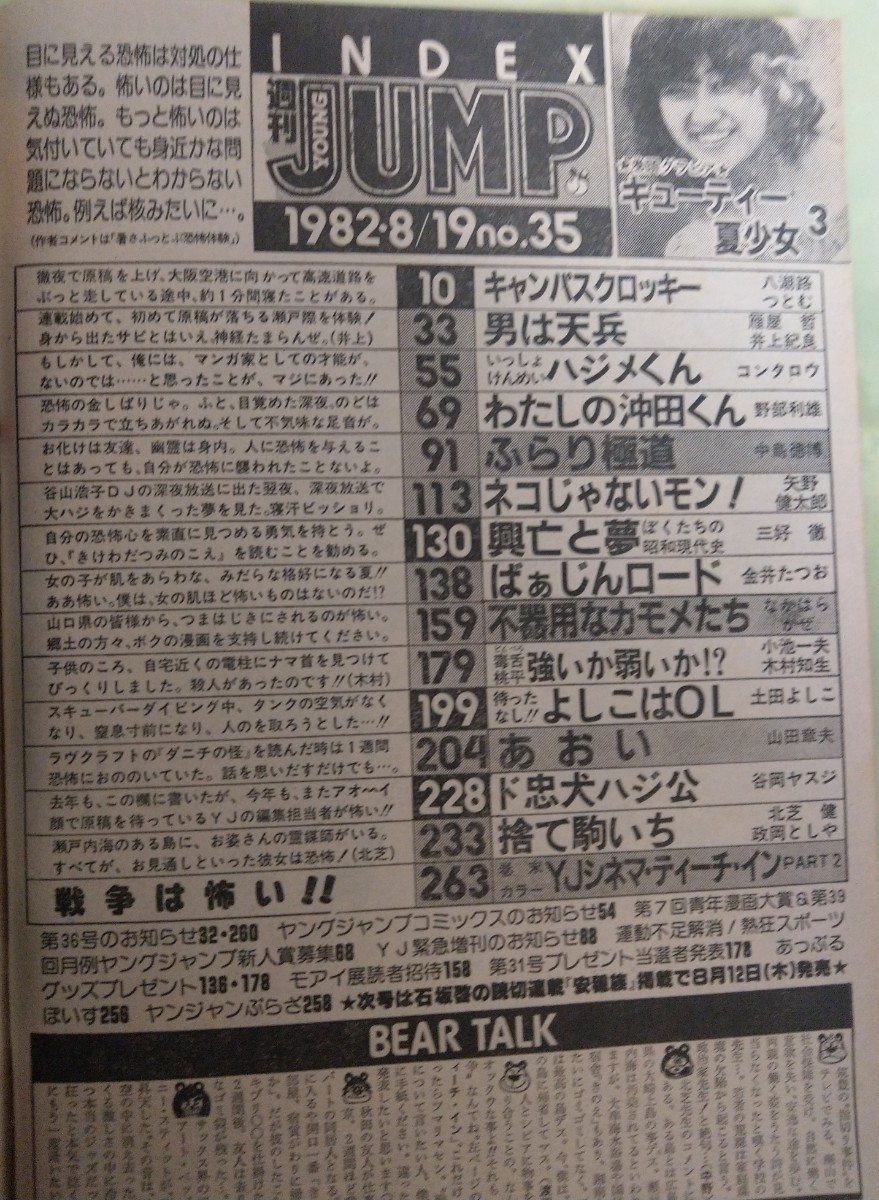 目に見える恐怖は対処の仕
様もある。怖いのは目に見
えぬ恐怖。もっと怖いのは
気付いていても身近かな問
題にならないとわからない
恐怖。例えば核みたいに…。
(作者コメントは「暑さふっとぶ恐怖体験」)
INDEX
週刊
YOUNG
JUMP
1982・8/19no.35
キューティー
夏少女 3
徹夜で原稿を上げ、大阪空港に向かって高速道路を
ぶっと走している途中、約1分間寝たことがある。
10 キャンパスクロッキー 八潮路つとむ
連載始めて、初めて原稿が落ちる瀬戸際を体験!
身から出たサビとはいえ、神経たまらんぜ。(井上)
33 男は天兵 雁屋 哲 井上紀良
もしかして、俺には、マンガ家としての才能が、
ないのでは……と思ったことが、マジにあった!!
55 いっしょけんめいハジメくん コンタロウ
恐怖の金しばりじゃ。ふと、目覚めた深夜、のどは
カラカラで立ちあがれぬ。そして不気味な足音が。
69 わたしの沖田くん 野部利雄
お化けは友達、幽霊は身内。人に恐怖を与えるこ
とはあっても、自分が恐怖に襲われたことないよ。
91 ふらり極道 中島徳博
谷山浩子DJの深夜放送に出た翌夜、深夜放送で
大ハジをかきまくった夢を見た。寝汗ビッショリ。
113 ネコじゃないモン! 矢野健太郎
自分の恐怖心を素直に見つめる勇気を持とう。ぜ
ひ、『きけわだつみのこえ』を読むことを勧める。
130 興亡と夢 ぼくたちの昭和現代史 三好 徹
女の子が肌をあらわな、みだらな格好になる夏!!
ああ怖い。僕は、女の肌ほど怖いものはないのだ!?
138 ばぁじんロード 金井たつお
山口県の皆様から、つまはじきにされるのが怖い。
郷土の方々、ボクの漫画を支持し続けてください。
159 不器用なカモメたち なかはらかぜ
子供のころ、自宅近くの電柱にナマ首を見つけて
びっくりしました。殺人があったのです!!(木村)
179 毒舌桃平 強いか弱いか!? 小池一夫 木村知生
スキューバーダイビング中、タンクの空気がなく
なり、窒息寸前になり、人のを取ろうとした…!!
199 待ったなし!! よしこはOL 土田よしこ
ラヴクラフトの『ダニチの怪』を読んだ時は1週間
恐怖におののいていた。話を思いだすだけでも…。
204 あおい 山田章夫
去年も、この欄に書いたが、今年も、またアオ〜イ
顔で原稿を待っているYJの編集担当者が怖い!!
228 ド忠犬ハジ公 谷岡ヤスジ
瀬戸内海のある島に、お姿さんの霊媒師がいる。
すべてが、お見通しといった彼女は恐怖!(北芝)
233 捨て駒いち 北芝 健 政岡としや
戦争は怖い!!
263 巻末カラー YJシネマ・ティーチ・イン PART2
第36号のお知らせ32・260 ヤングジャンプコミックスのお知らせ54 第7回青年漫画大賞&第39
回月例ヤングジャンプ新人賞募集68 YJ緊急増刊のお知らせ88 運動不足解消/熱狂スポーツ
グッズプレゼント136・178 モアイ展読者招待158 第31号プレゼント当選者発表178 あっぷる
ぼいす256 ヤンジャンぷらざ258 ★次号は石坂啓の読切連載『安穏族』掲載で8月12日(木)発売★
BEAR TALK